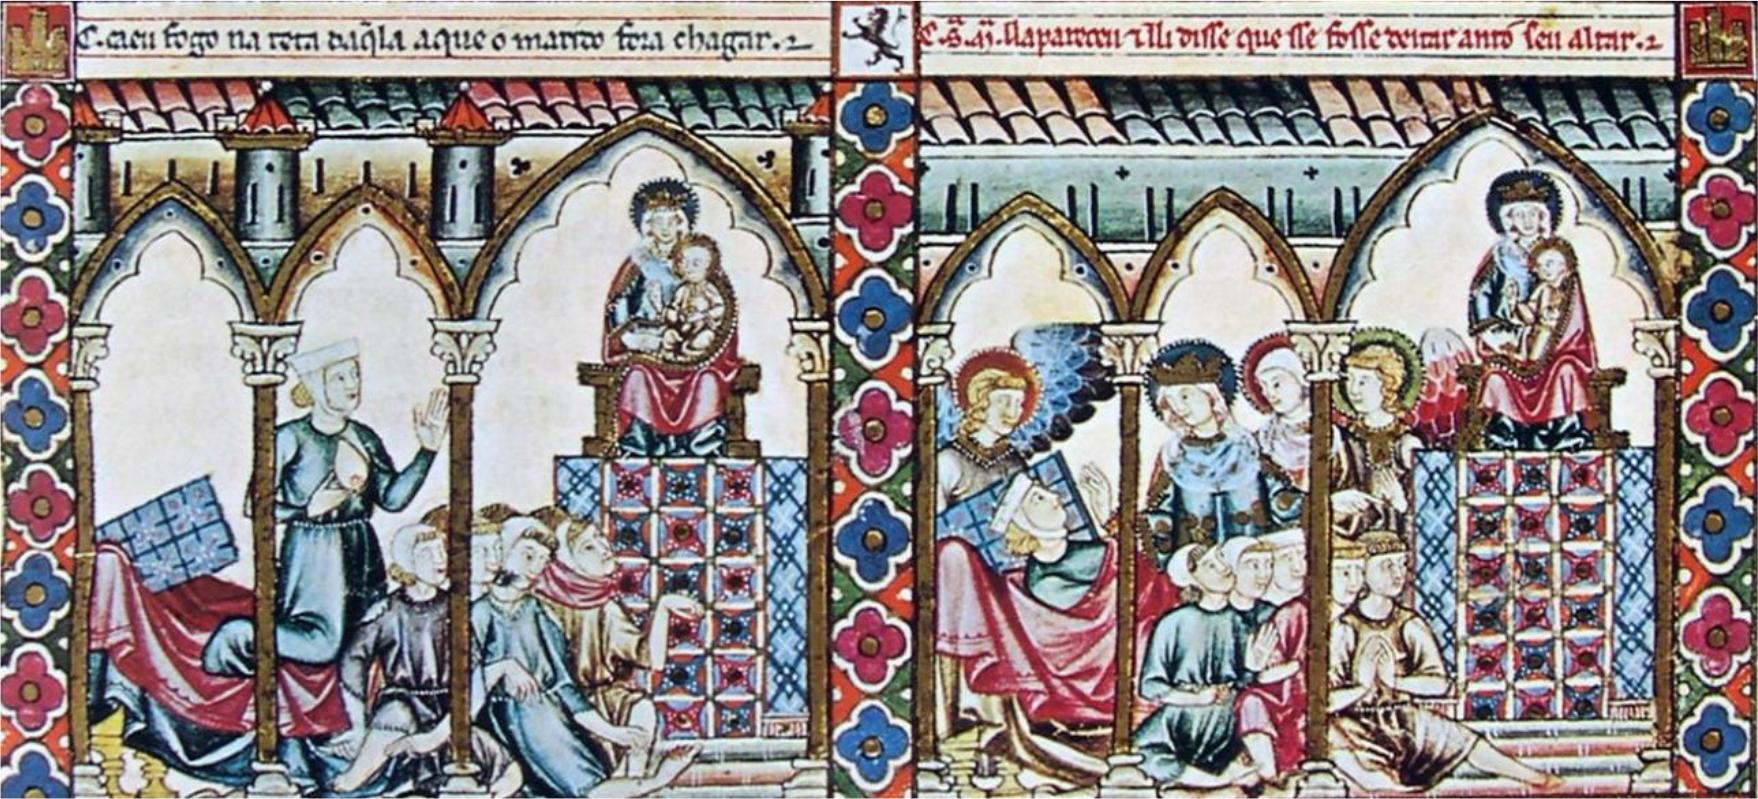 C. caeu fogo na teta daq̃la a que o marido fora chagar.
C. S.ᵃ M.ᵃ ll apareceu ⁊ lli disse que sse fosse deitar antō seu altar.